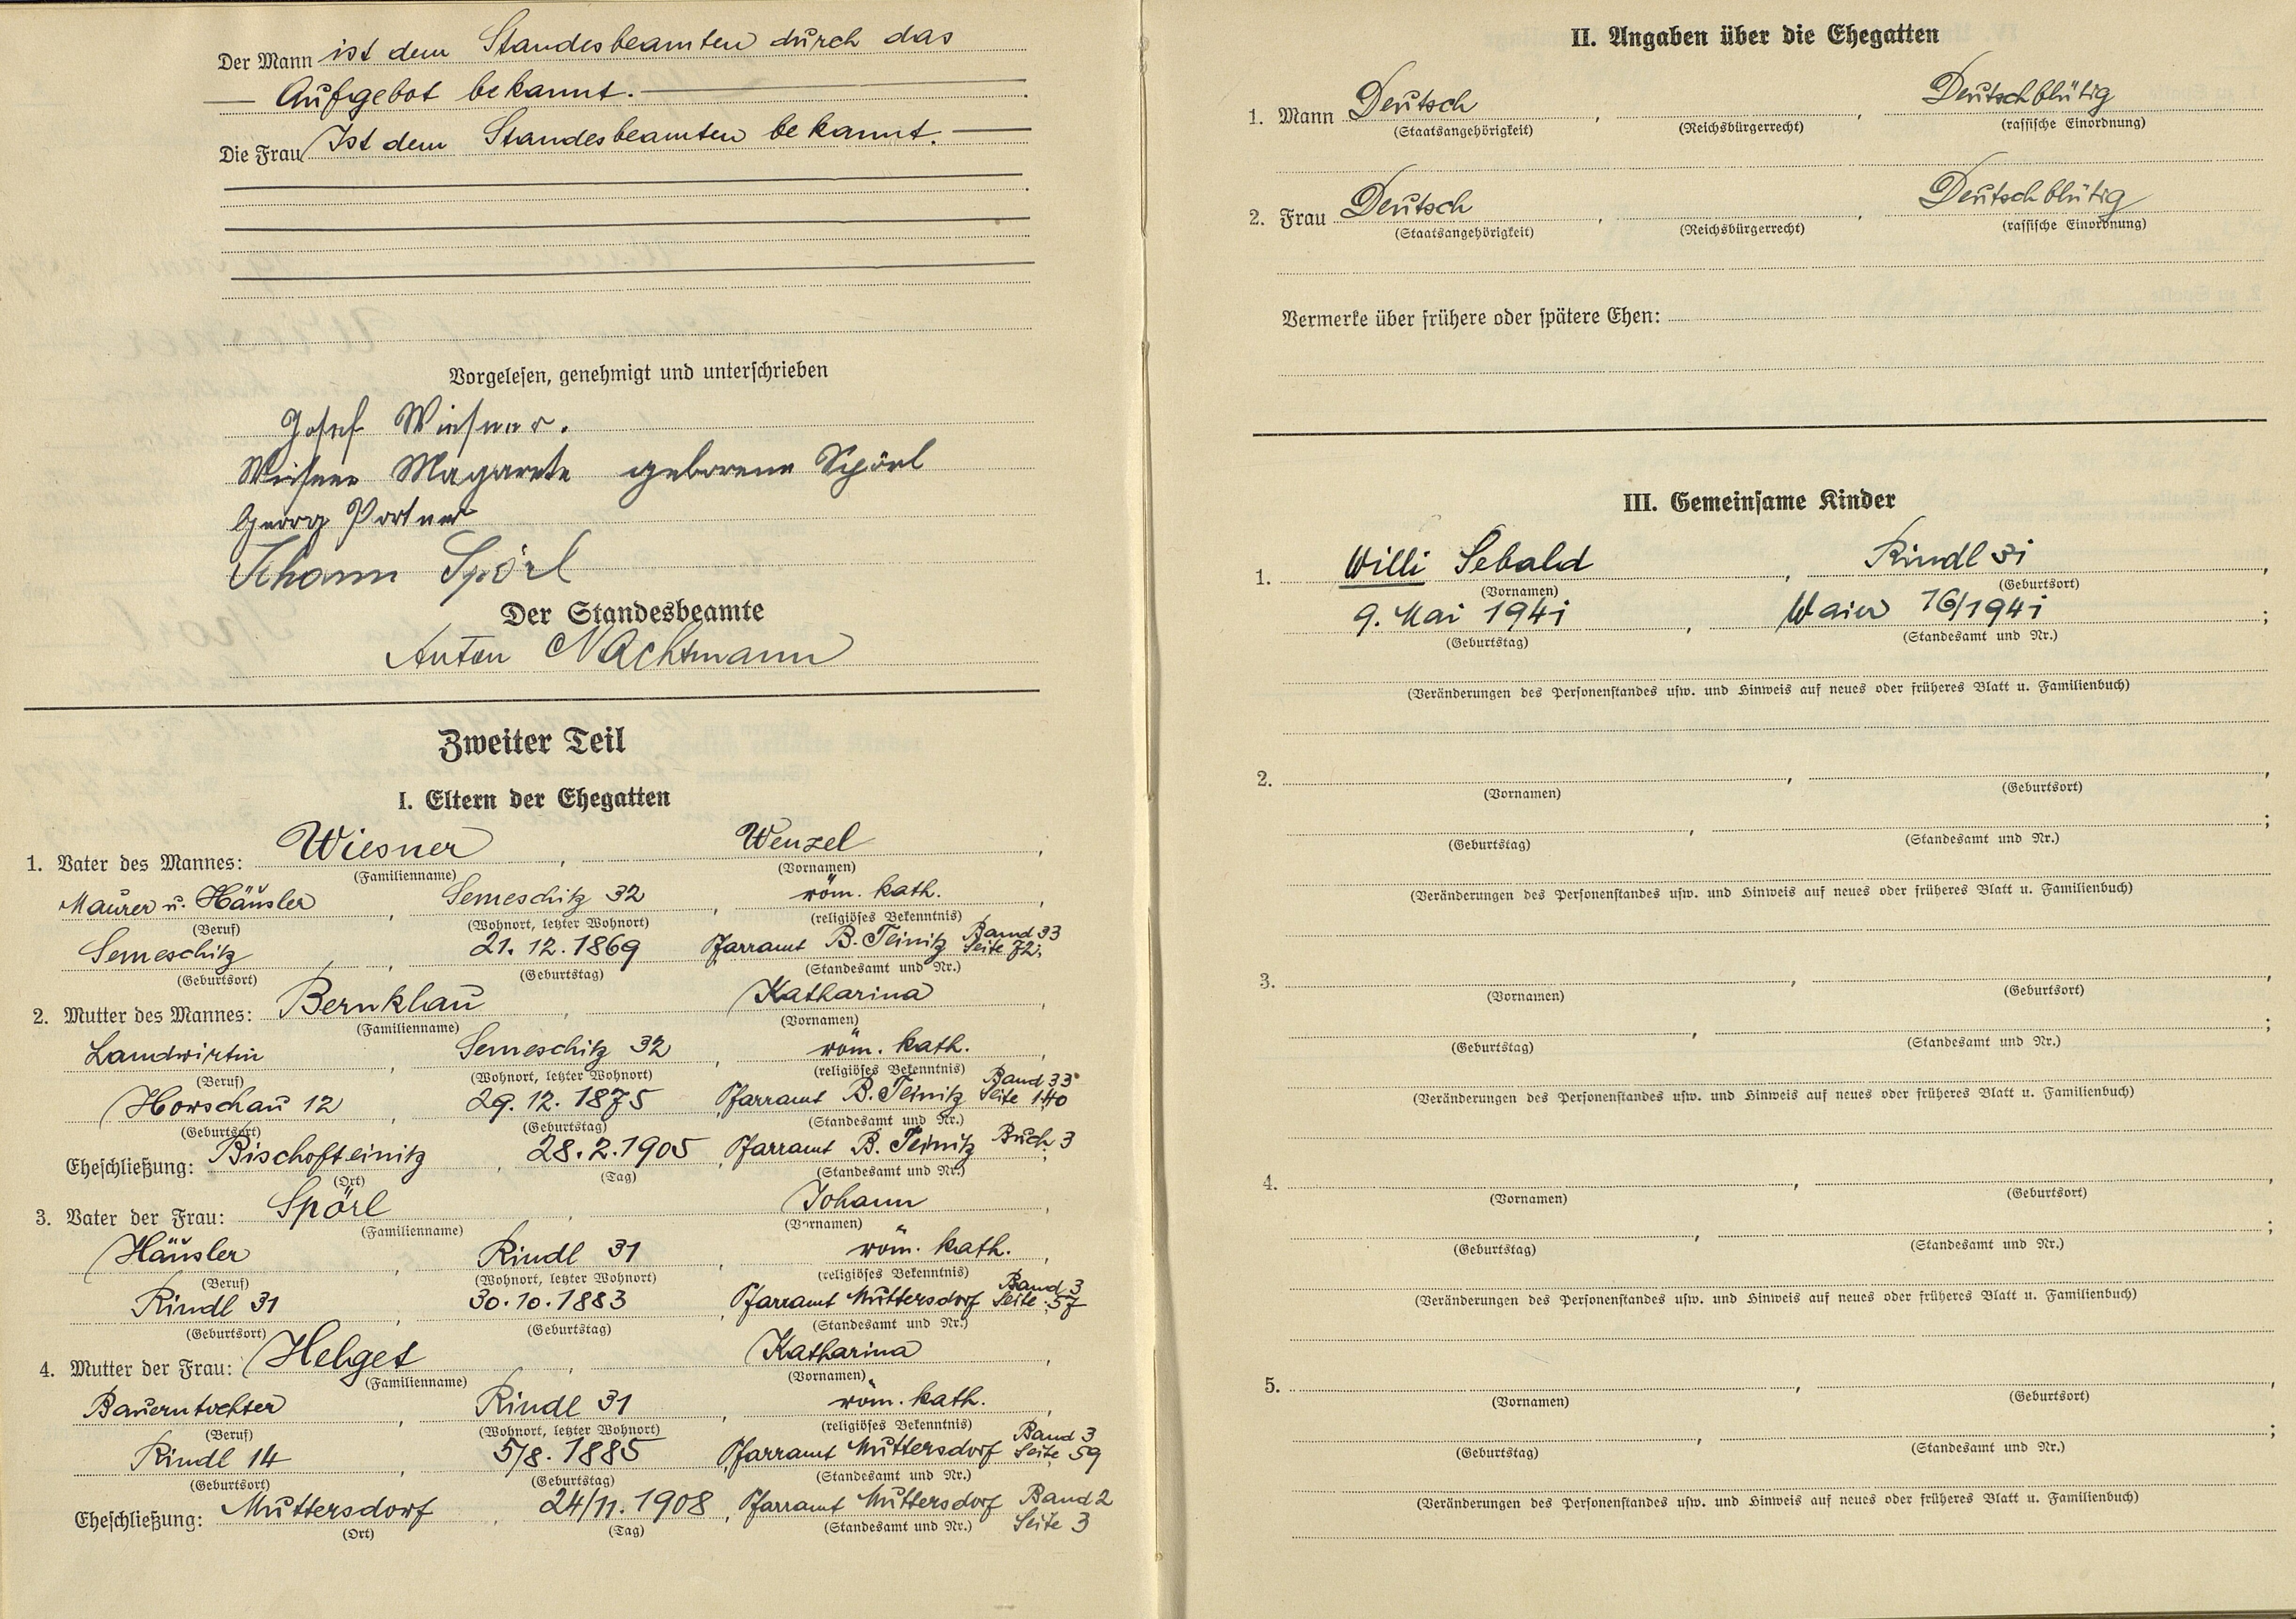 Der Mann ist dem Standesbeamten durch das
Aufgebot bekannt.
Die Frau Ist dem Standesbeamten bekannt.
Vorgelesen, genehmigt und unterschrieben
Josef Wiesner.
Wiesner Magarete geborene Spörl
Georg Portner
Johann Spörl
Der Standesbeamte
Anton Nachtmann
Zweiter Teil
I. Eltern der Ehegatten
1. Vater des Mannes: Wiesner, Wenzel,
(Familienname) (Vornamen)
Maurer u. Häusler, Semeschitz 32, röm. kath.,
(Beruf) (Wohnort, letzter Wohnort) (religiöses Bekenntnis)
Semeschitz, 21.12.1869 Pfarramt B. Teinitz Band 33 Seite 72;
(Geburtsort) (Geburtstag) (Standesamt und Nr.)
2. Mutter des Mannes: Bernklau, Katharina,
(Familienname) (Vornamen)
Landwirtin, Semeschitz 32, röm. kath.,
(Beruf) (Wohnort, letzter Wohnort) (religiöses Bekenntnis)
Horschau 12, 29.12.1875, Pfarramt B. Teinitz Band 33 Seite 140
(Geburtsort) (Geburtstag) (Standesamt und Nr.)
Eheschließung: Bischofteinitz, 28.2.1905, Pfarramt B. Teinitz Buch 3
(Ort) (Tag) (Standesamt und Nr.)
3. Vater der Frau: Spörl, Johann,
(Familienname) (Vornamen)
Häusler, Rindl 31, röm. kath.,
(Beruf) (Wohnort, letzter Wohnort) (religiöses Bekenntnis)
Rindl 31, 30.10.1883, Pfarramt Muttersdorf Band 3 Seite 57
(Geburtsort) (Geburtstag) (Standesamt und Nr.)
4. Mutter der Frau: Helget, Katharina,
(Familienname) (Vornamen)
Bauerntochter, Rindl 31, röm. kath.,
(Beruf) (Wohnort, letzter Wohnort) (religiöses Bekenntnis)
Rindl 14, 5/8.1885 Pfarramt Muttersdorf Band 3 Seite 59
(Geburtsort) (Geburtstag) (Standesamt und Nr.)
Eheschließung: Muttersdorf, 24/11.1908, Pfarramt Muttersdorf Band 2 Seite 3
(Ort) (Tag) (Standesamt und Nr.)
II. Angaben über die Ehegatten
1. Mann Deutsch, , Deutschblütig
(Staatsangehörigkeit) (Reichsbürgerrecht) (rassische Einordnung)
2. Frau Deutsch, , Deutschblütig
(Staatsangehörigkeit) (Reichsbürgerrecht) (rassische Einordnung)
Vermerke über frühere oder spätere Ehen:
III. Gemeinsame Kinder
1. Willi Sebald, Rindl 31,
(Vornamen) (Geburtsort)
9. Mai 1941, Waier 16/1941;
(Geburtstag) (Standesamt und Nr.)
(Veränderungen des Personenstandes usw. und Hinweis auf neues oder früheres Blatt u. Familienbuch)
2. , ,
(Vornamen) (Geburtsort)
, ;
(Geburtstag) (Standesamt und Nr.)
(Veränderungen des Personenstandes usw. und Hinweis auf neues oder früheres Blatt u. Familienbuch)
3. , ,
(Vornamen) (Geburtsort)
, ;
(Geburtstag) (Standesamt und Nr.)
(Veränderungen des Personenstandes usw. und Hinweis auf neues oder früheres Blatt u. Familienbuch)
4. , ,
(Vornamen) (Geburtsort)
, ;
(Geburtstag) (Standesamt und Nr.)
(Veränderungen des Personenstandes usw. und Hinweis auf neues oder früheres Blatt u. Familienbuch)
5. , ,
(Vornamen) (Geburtsort)
, ;
(Geburtstag) (Standesamt und Nr.)
(Veränderungen des Personenstandes usw. und Hinweis auf neues oder früheres Blatt u. Familienbuch)